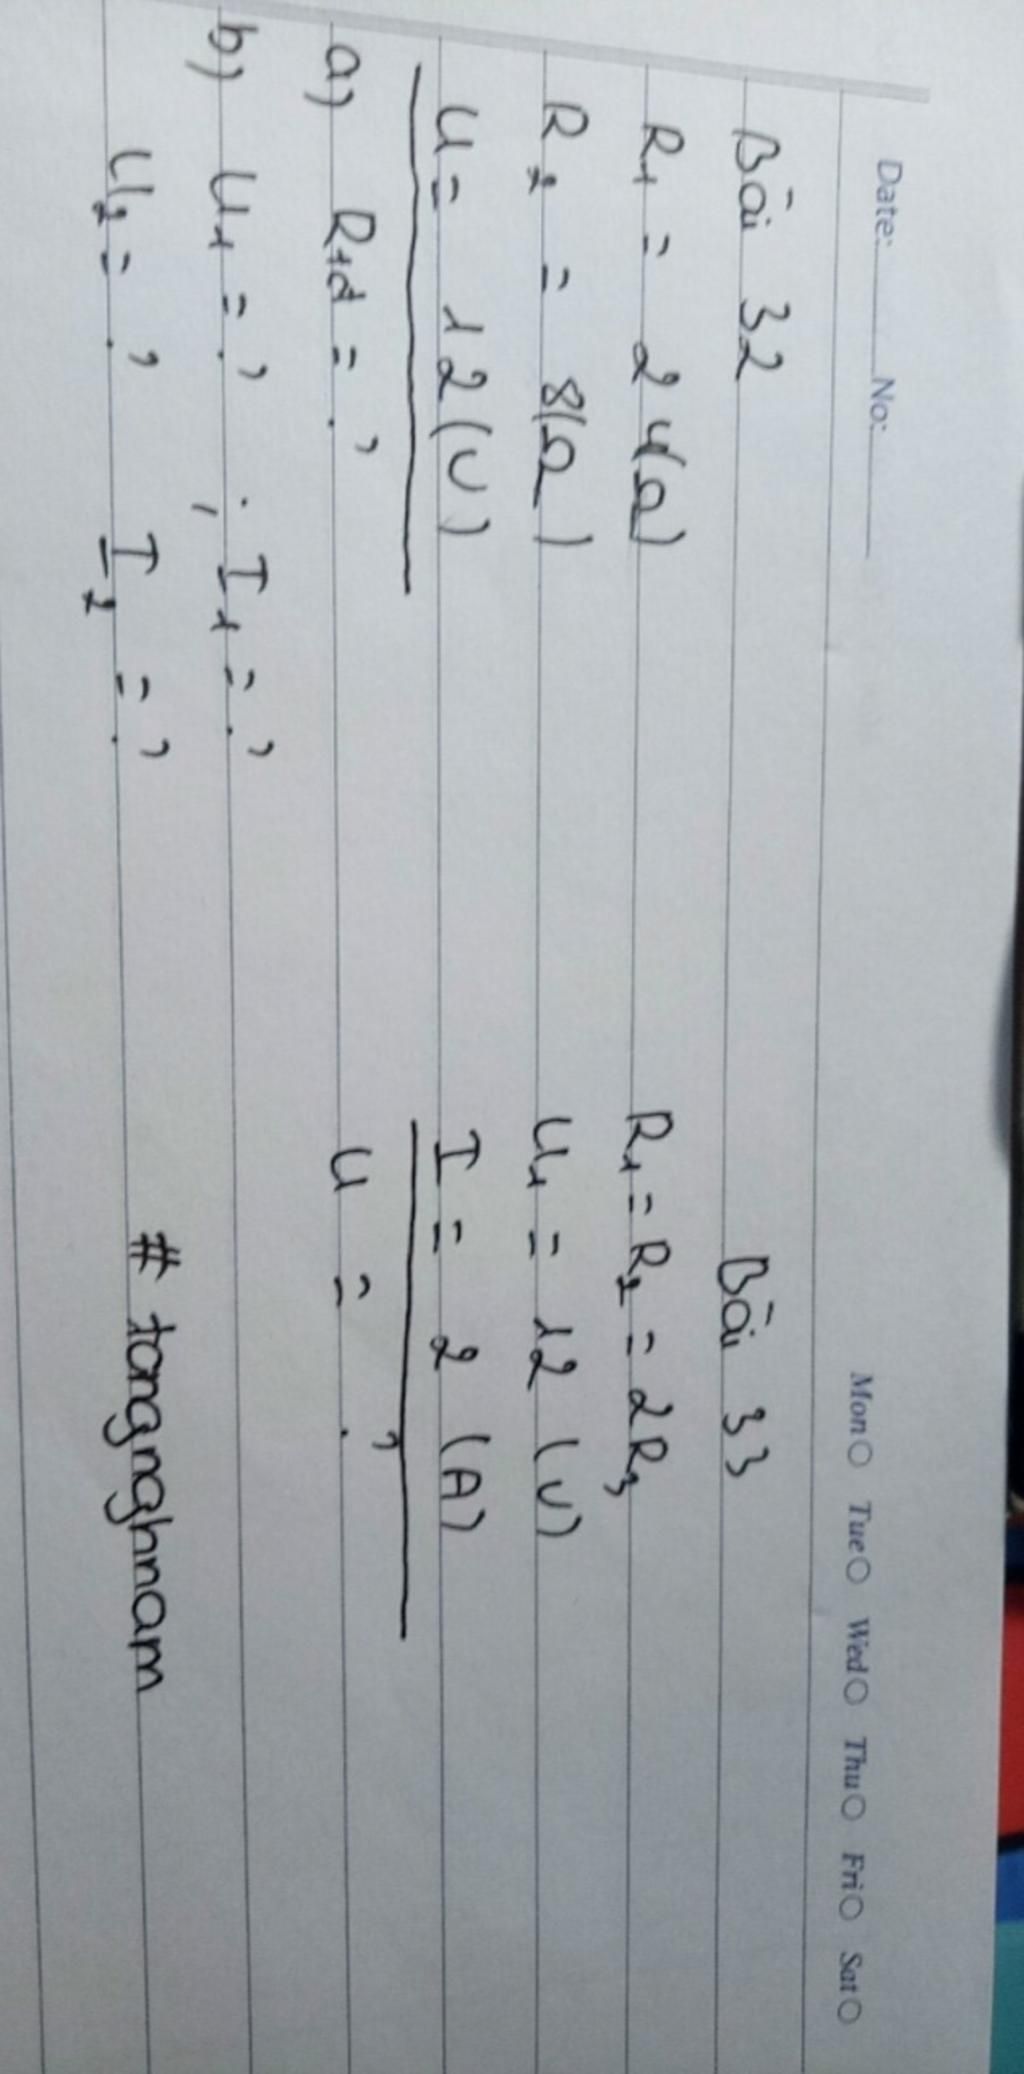 Date: No: Mon Tue Wed Thu Fri Sat
Bài 32
R1 = 24(Ω)
R2 = 8(Ω)
U = 12(V)
a) Rtđ = ?
b) U1 = ? ; I1 = ?
U2 = ? I2 = ?
Bài 33
R1 = R2 = 2R3
U1 = 12 (V)
I = 2 (A)
U = ?
# tongnghnam